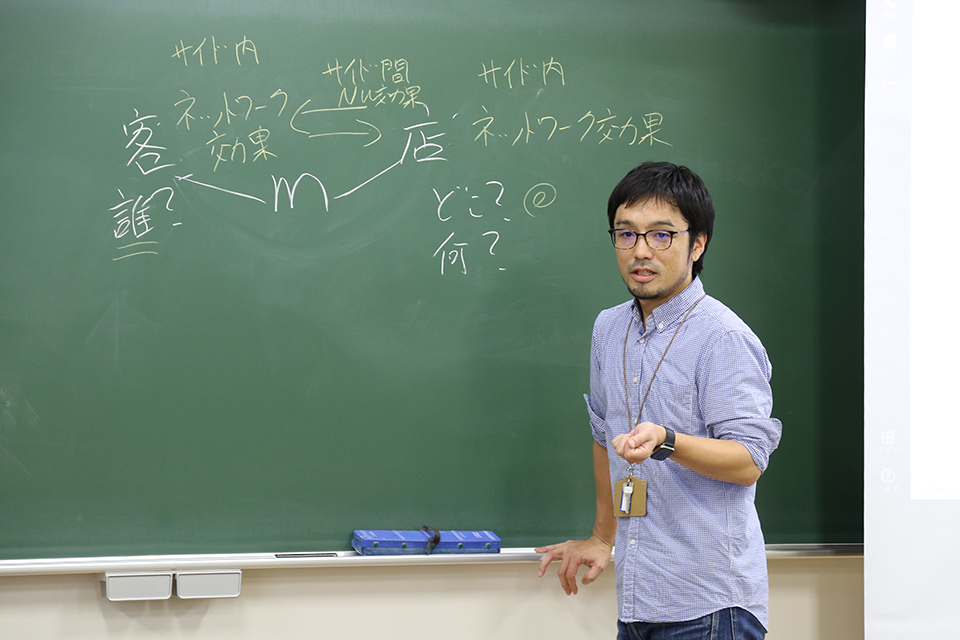 サイド内
ネットワーク
効果
サイド間
NW効果
サイド内
ネットワーク効果
客
店
m
誰?
どこ? @
何?